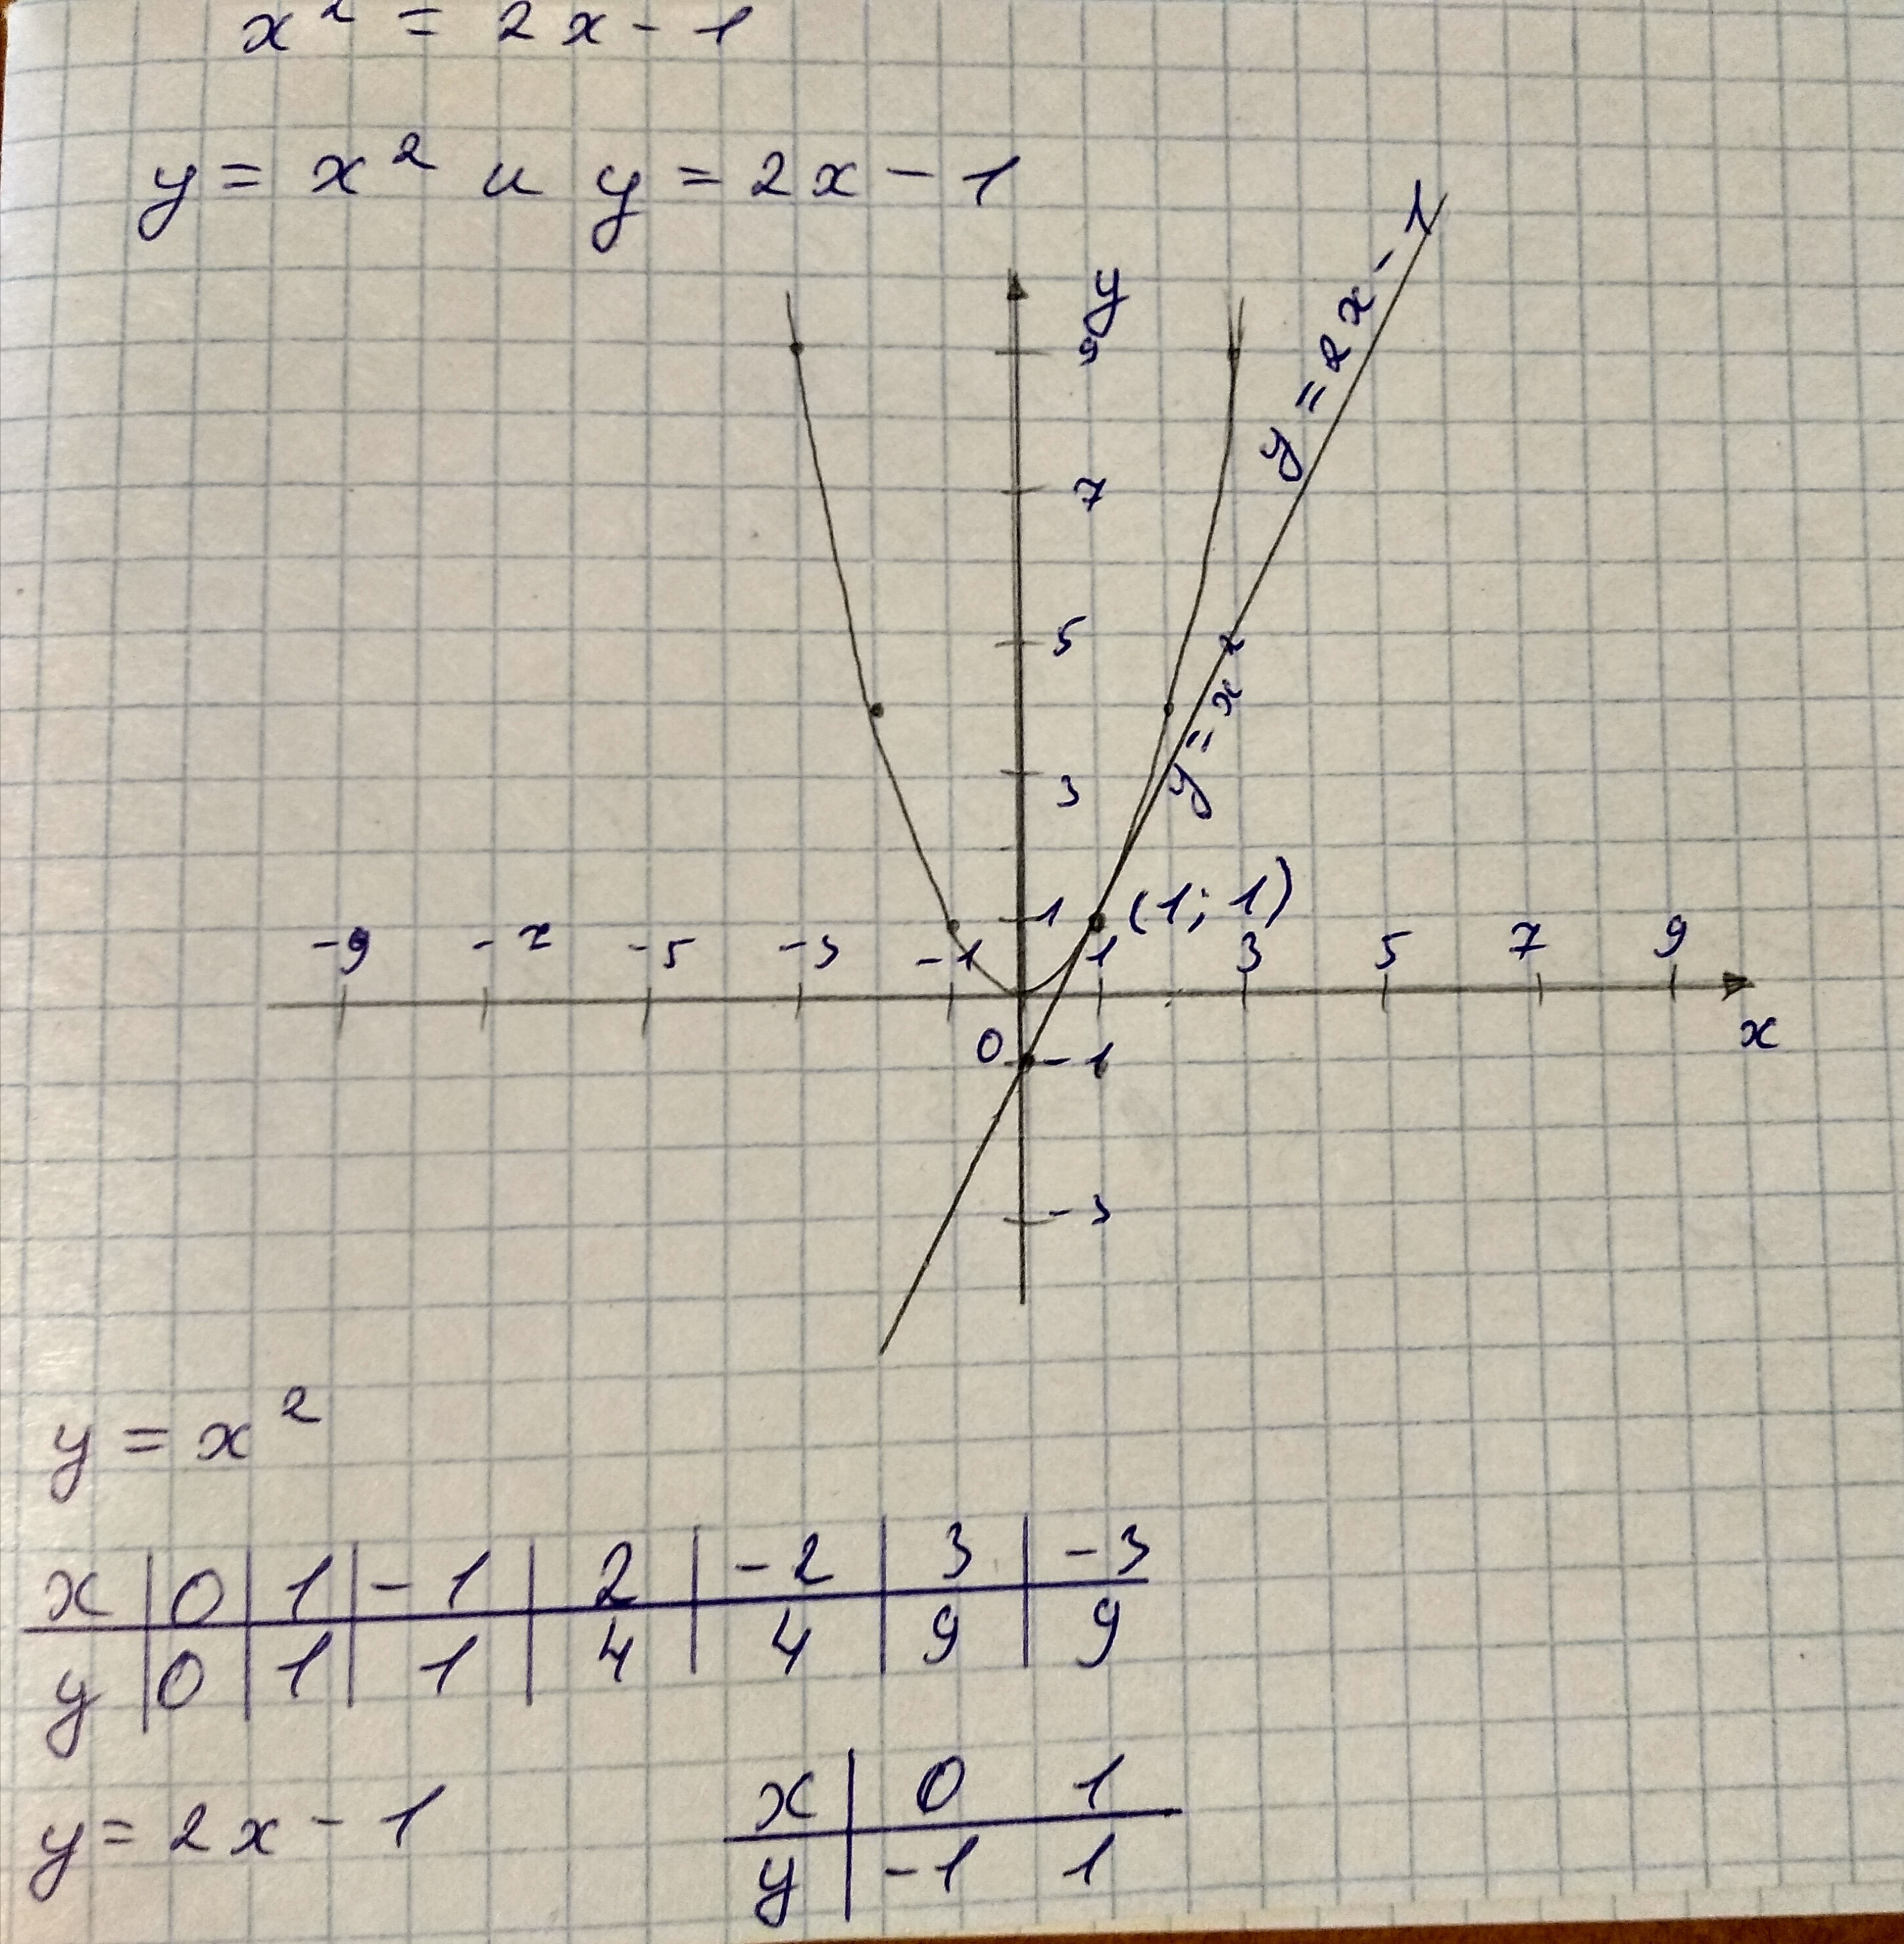 x² = 2x - 1
y = x² и y = 2x - 1
y
9
y = 2x - 1
7
5
y = x²
3
1
(1; 1)
-9 -7 -5 -3 -1 1 3 5 7 9
x
0
-1
-3
y = x²
x | 0 | 1 | -1 | 2 | -2 | 3 | -3
y | 0 | 1 | 1 | 4 | 4 | 9 | 9
y = 2x - 1
x | 0 1
y | -1 1